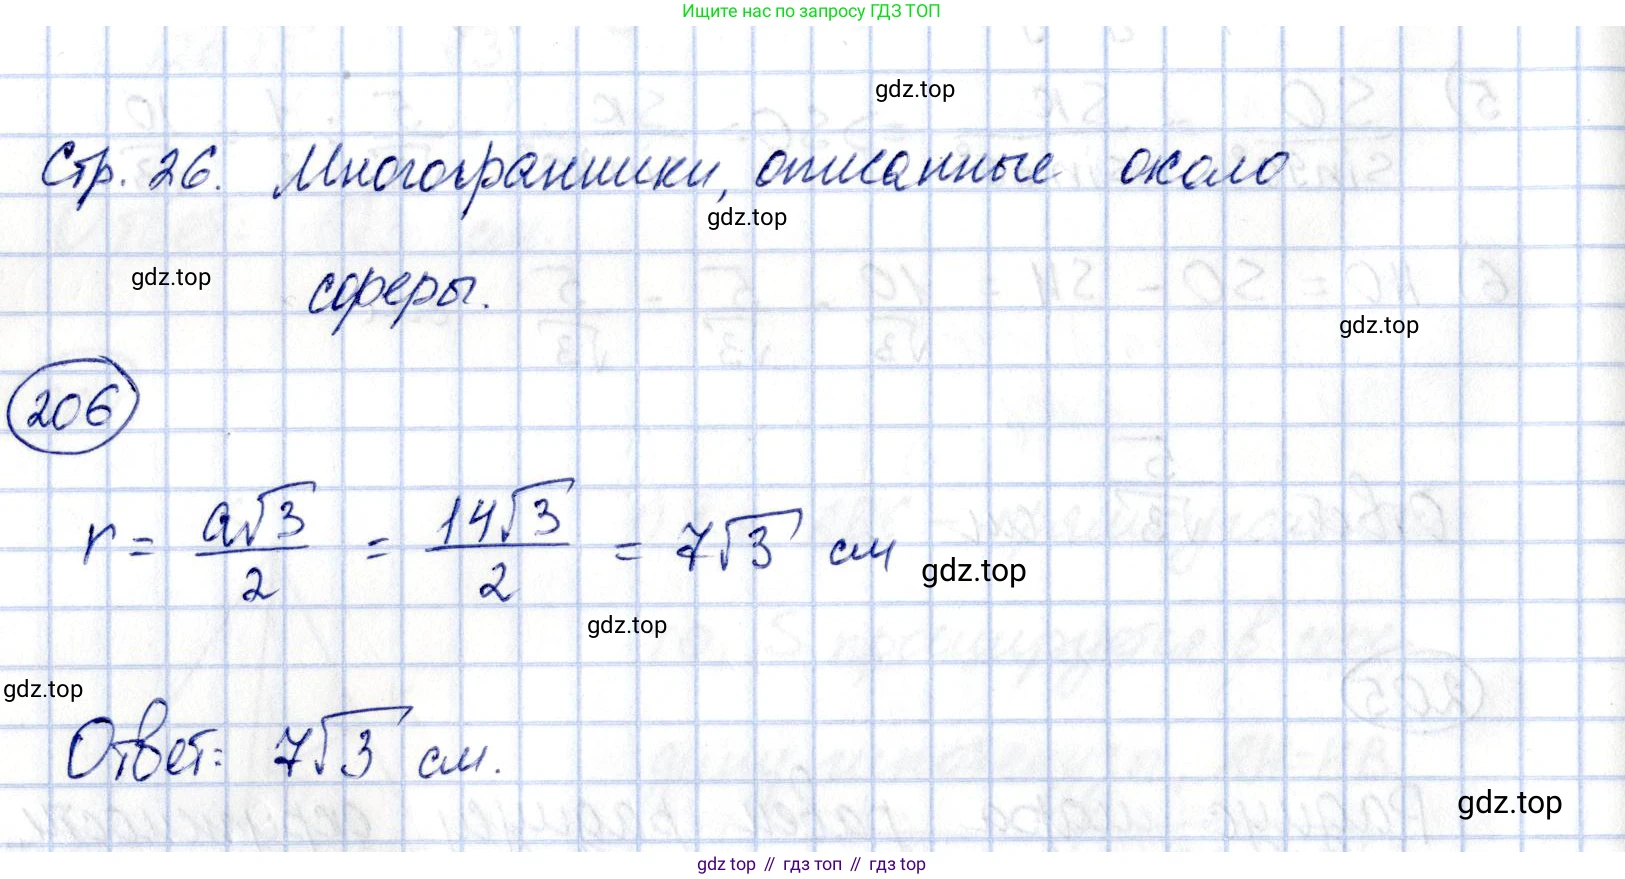 Ищите нас по запросу ГДЗ ТОП
gdz.top
Стр. 26. Многогранники, описанные около
gdz.top
gdz.top
сферы.
gdz.top
206
r = a√3/2 = 14√3/2 = 7√3 см
gdz.top
gdz.top
gdz.top
Ответ: 7√3 см.
gdz.top
gdz.top // гдз топ // гдз top